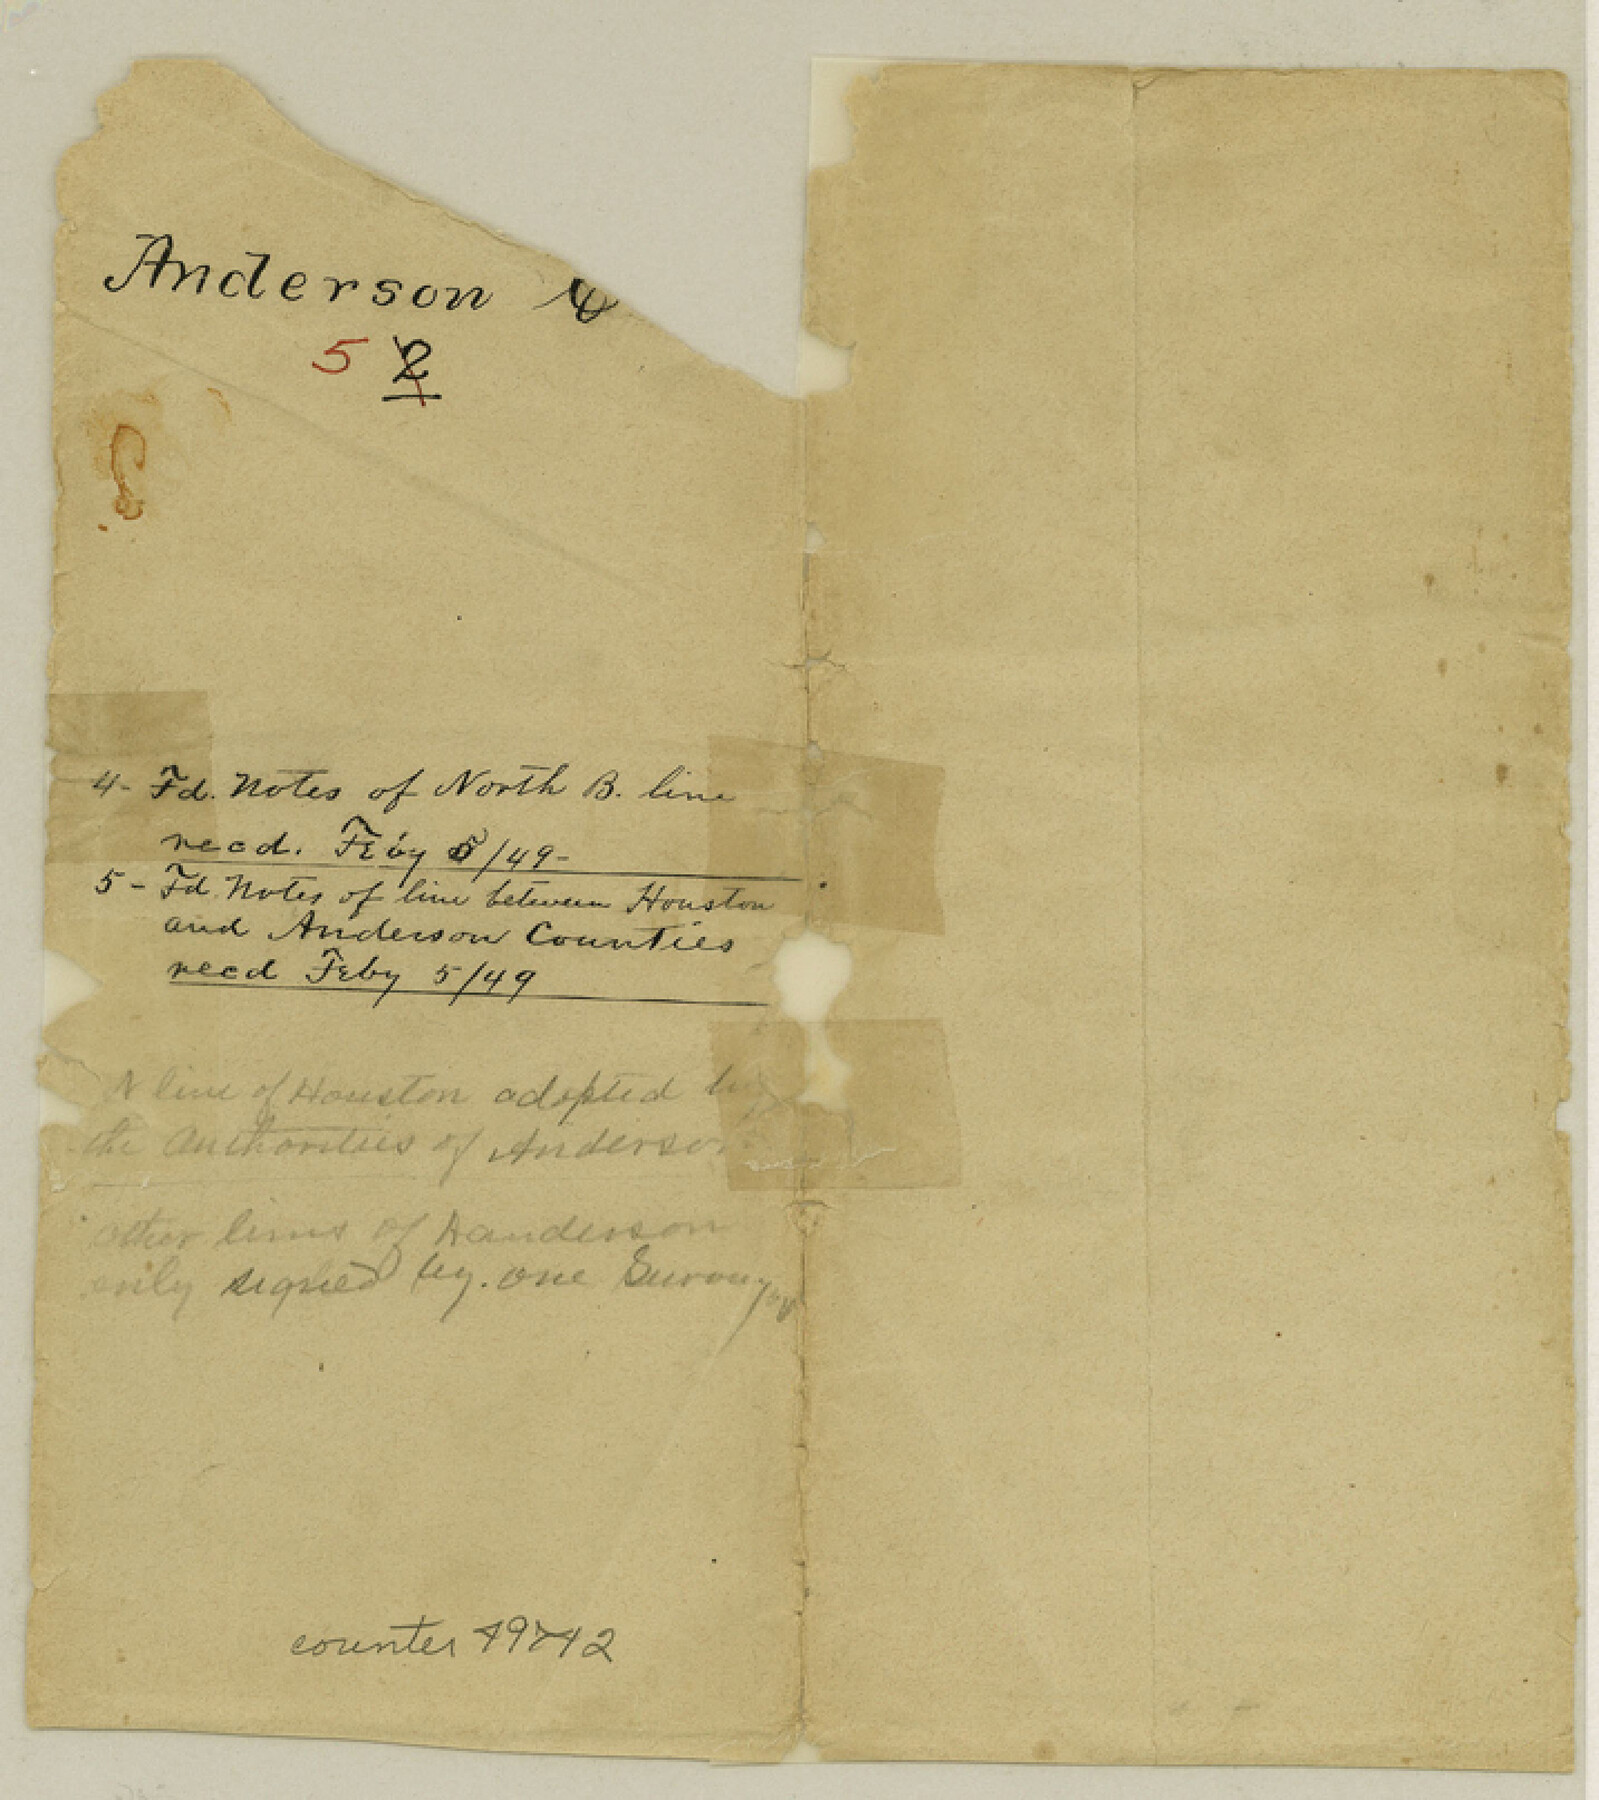 Anderson
5 2
4- Fd. Notes of North B. line
recd. Feby 5/49-
5- Fd. Notes of line between Houston
and Anderson Counties
recd Feby 5/49
N line of Houston adopted by
the Authorities of Anderson
other lines of Handerson
only signed by. one Surveyor
counter 49742